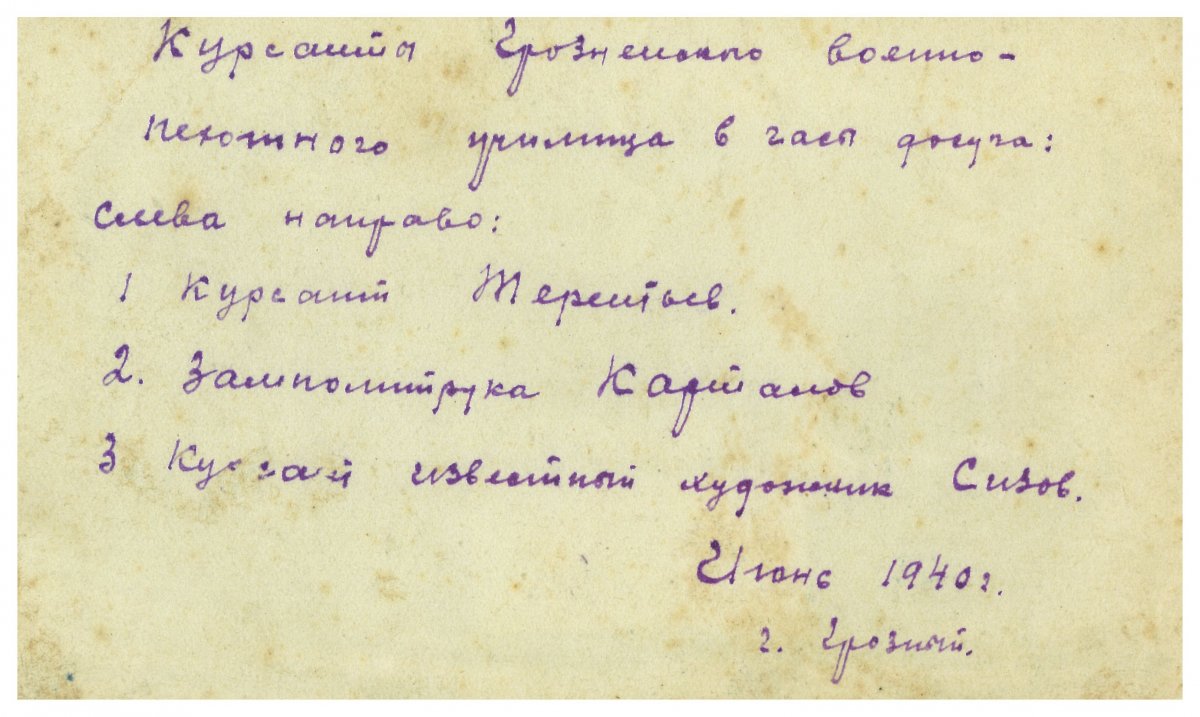 Курсанты Грозненского военно-
пехотного училища в часы досуга:
Слева направо:
1 Курсант Терентьев.
2. Замполитрука Карталов
3 Курсант известный художник Сизов.
Июнь 1940 г.
г. Грозный.